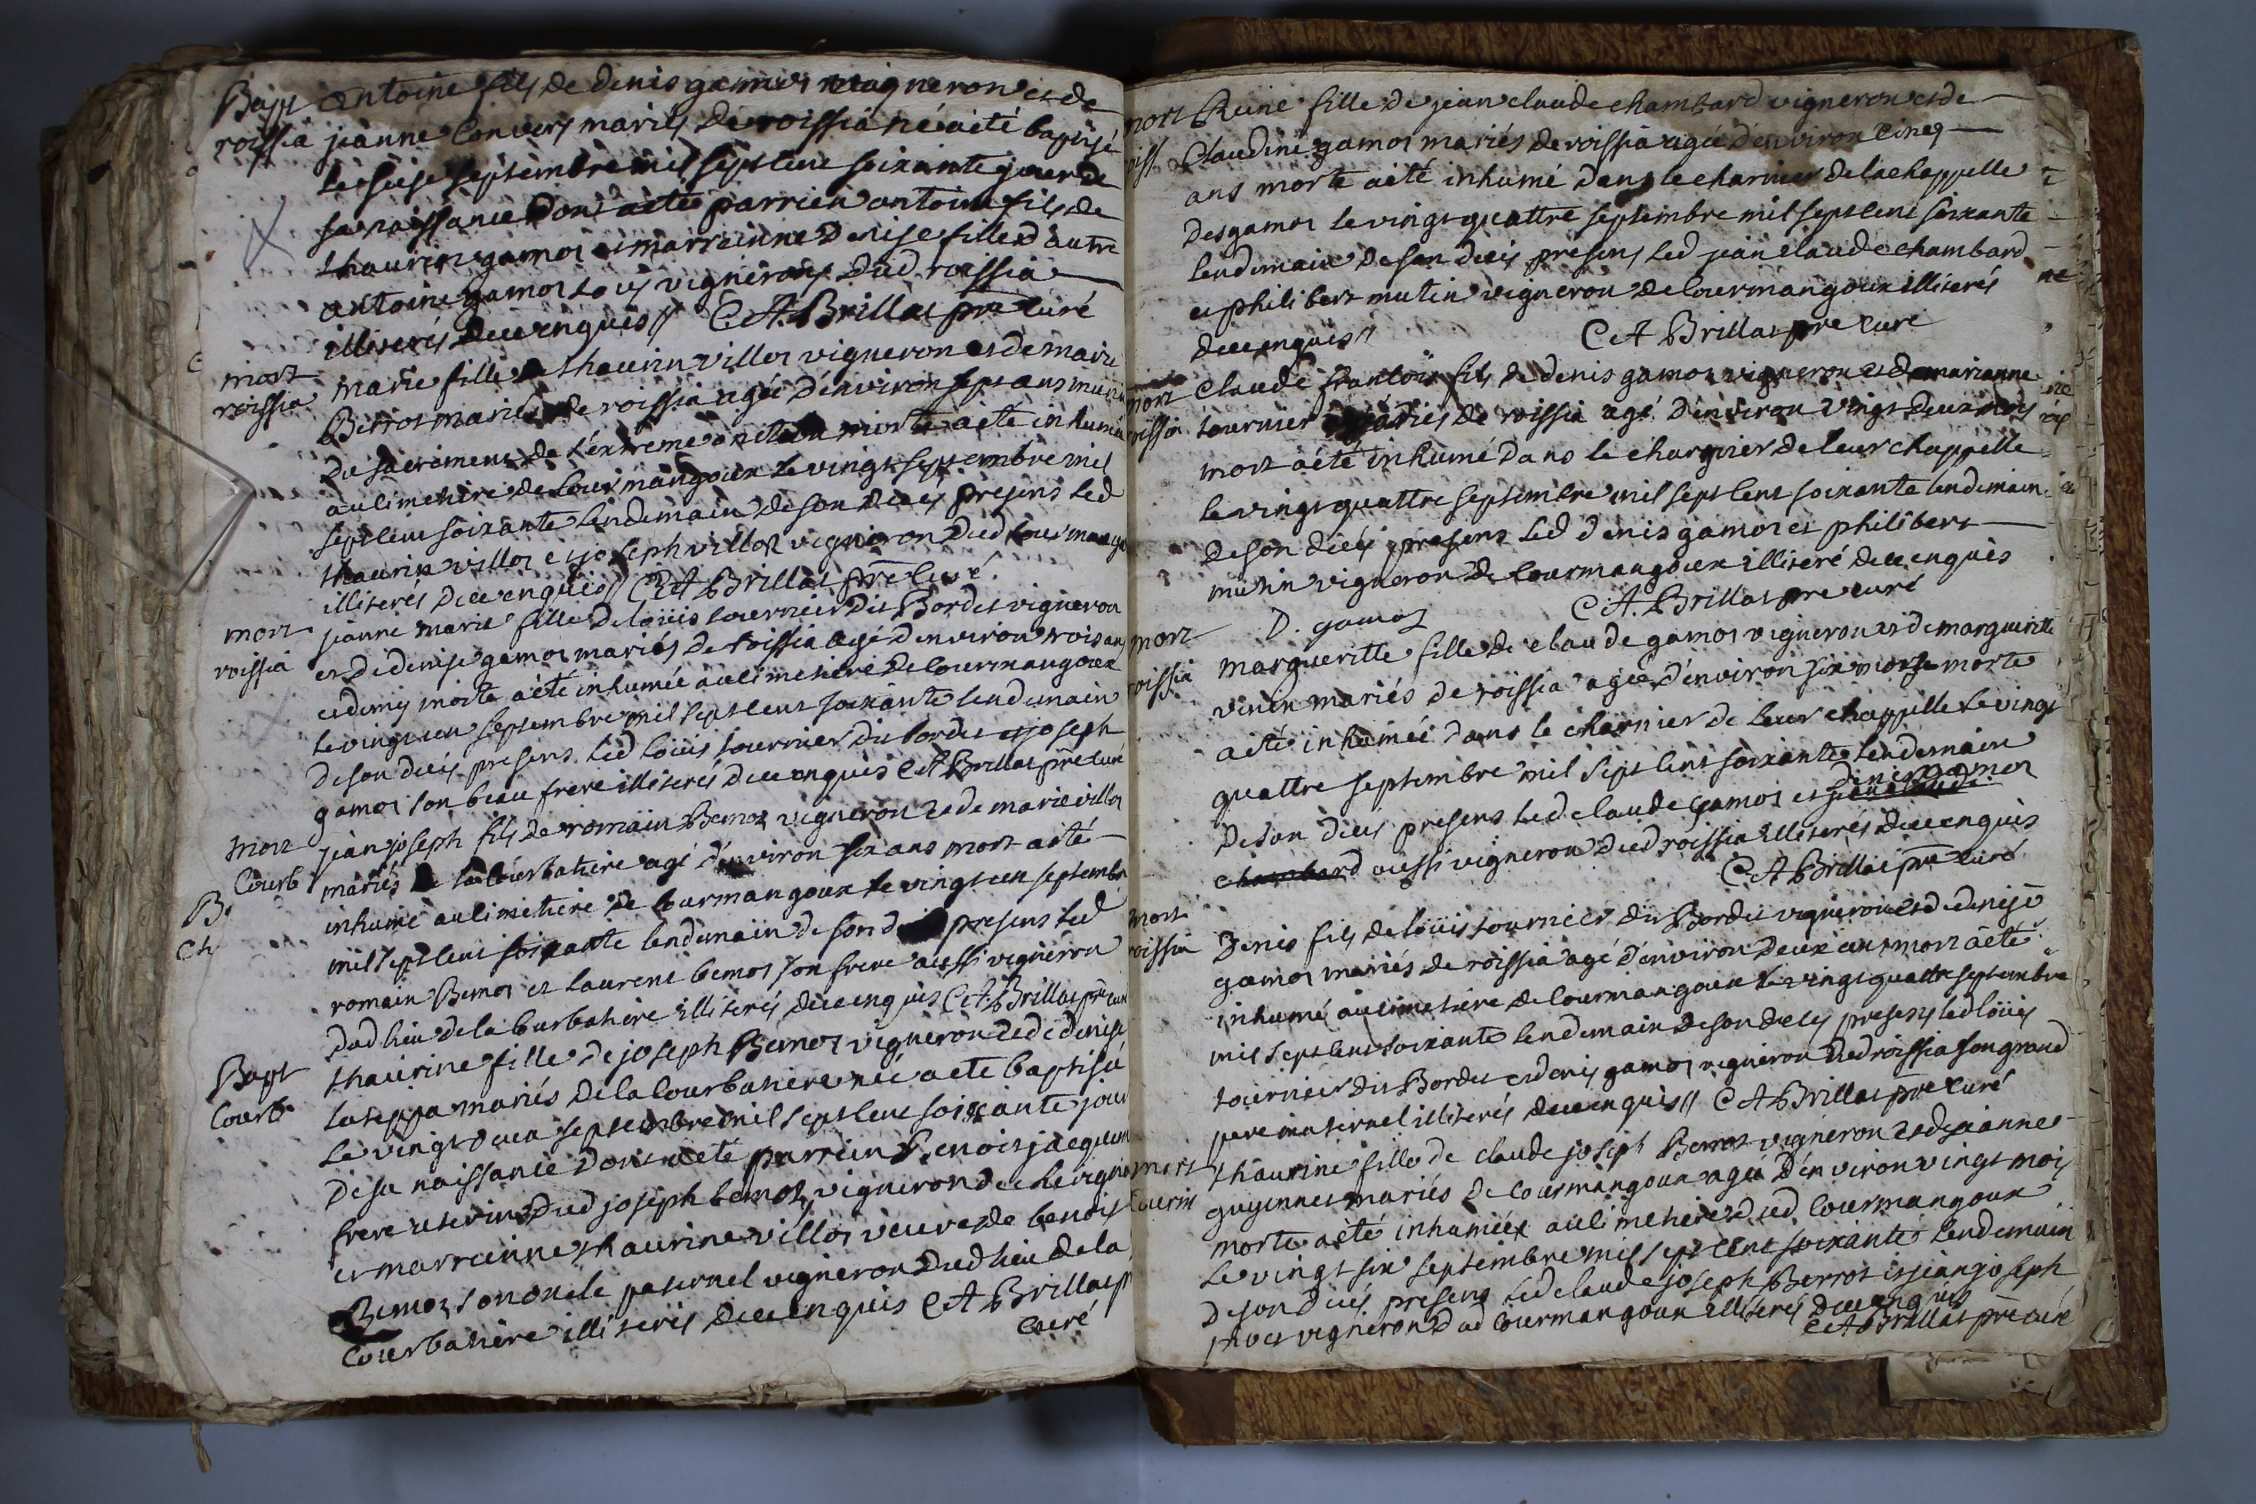 Bapt
roissia
antoine fils de denis gamot vigneron et de
jeanne Convers mariés de roissia né a eté baptisé
le seise septembre mil sept cent soixante jour de
sa naissance dont a eté parrein antoine fils de
thaurin gamot et marreinne denise fille d'autre
antoine gamot tous vignerons dud. roissia
illiterés de ce enquis // C A Brillat pre curé
mort
roissia
marie fille de thaurin villot vigneron et de marie
Berrot mariés de roissia agée d'environ sept ans munie
du sacrement de l'extreme onction morte a eté inhumée
au cimetiere de Courmangoux le vingt septembre mil
sept cent soixante lendemain de son deces presens led
thaurin villot et joseph villot vigneron dud
illiterés de ce enquis // C A Brillat pre curé
mort
roissia
jeanne marie fille de loüis tournier dit Bordet vigneron
et de denise gamot mariés de roissia agé denviron trois ans
et demy morte a eté inhumée au cimetiere de Courmangoux
le vingt un septembre mil sept cent soixante lendemain
de son deces presens led loüis tournier dit bordet et joseph
gamot son beau frere illiterés de ce enquis C A Brillat pre curé
mort
Courb
jean joseph fils de romain Bemot vigneron et de marie villot
mariés de la Courbatiere agé d'environ six ans mort a eté
inhumé au cimetiere de Courmangoux le vingt un septembre
mil sept cent soixante lendemain de son presens led
romain Bemot et laurent bemot son frere aussi vigneron
dud lieu de la Courbatiere illiterés de ce enquis C A Brillat pre curé
B.
Ch
Bapt
Courb.
thaurine fille de joseph Bemot vigneron et de denise
lateppa mariés de la Courbatiere née a eté baptisée
le vingt deux septembre mil sept cent soixante jour
de sa naissance dont a eté parrein Benoit jacquem
frere uterin dud joseph bemot vigneron de
et marreinne thaurine villot veuve de benoit
Bemot son oncle paternel vigneron dud lieu de la
Courbatiere illiterés de ce enquis C A Brillat pre
curé
mort
roiss
Reine fille de jean claude chambard vigneron et de
Claudine gamot mariés de roissia agée d'environ cinq
ans morte a eté inhumé dans le charnier de la chappelle
des gamot le vingt quattre septembre mil sept cent soixante
lendemain de son deces presens led jean claude chambard
et philibert mutin vigneron de Courmangoux illiterés
de ce enquis //
C A Brillat pre curé
mort
roissia
Claude françois fils de denis gamot vigneron et de marianne
tournier mariés de roissia agé d'environ vingt deux mois
mort a eté inhumé dans le charnier de leur chappelle
le vingt quattre septembre mil sept cent soixante lendemain
de son deces presens led denis gamot et philibert
mutin vigneron de Courmangoux illiteré de ce enquis
D. gamot
C A. Brillat pre curé
mort
roissia
margueritte fille de claude gamot vigneron et de margueritte
vinin mariés de roissia agée d'environ six mois morte
a eté inhumée dans le charnier de leur chappelle le vingt
quattre septembre mil sept cent soixante lendemain
de son deces presens led claude gamot et denis gamot
chambard aussi vigneron dud roissia illiterés de ce enquis
C A Brillat pre curé
mort
roissia
Denis fils de loüis tournier dit Bordet vigneron et de denise
gamot mariés de roissia agé d'environ deux ans mort a eté
inhumé au cimetiere de Courmangoux le vingt quattre septembre
mil sept cent soixante lendemain de son deces presens led loüis
tournier dit Bordet et denis gamot vigneron dud roissia son grand
pere maternel illiterés de ce enquis // C A Brillat pre curé
mort
Courm
thaurine fille de claude joseph Berrot vigneron et de jeanne
guyennet mariés de Courmangoux agée d'environ vingt mois
morte a eté inhumée au cimetiere dud Courmangoux
le vingt six septembre mil sept cent soixante lendemain
de son deces presens led claude joseph Berrot et jean joseph
vigneron dud Courmangoux illiterés de ce enquis
C A Brillat pre curé